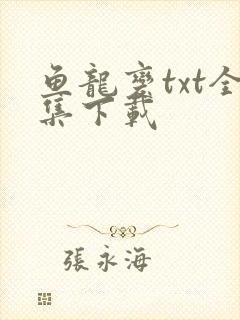 鱼龍变txt全
集下載
張永海